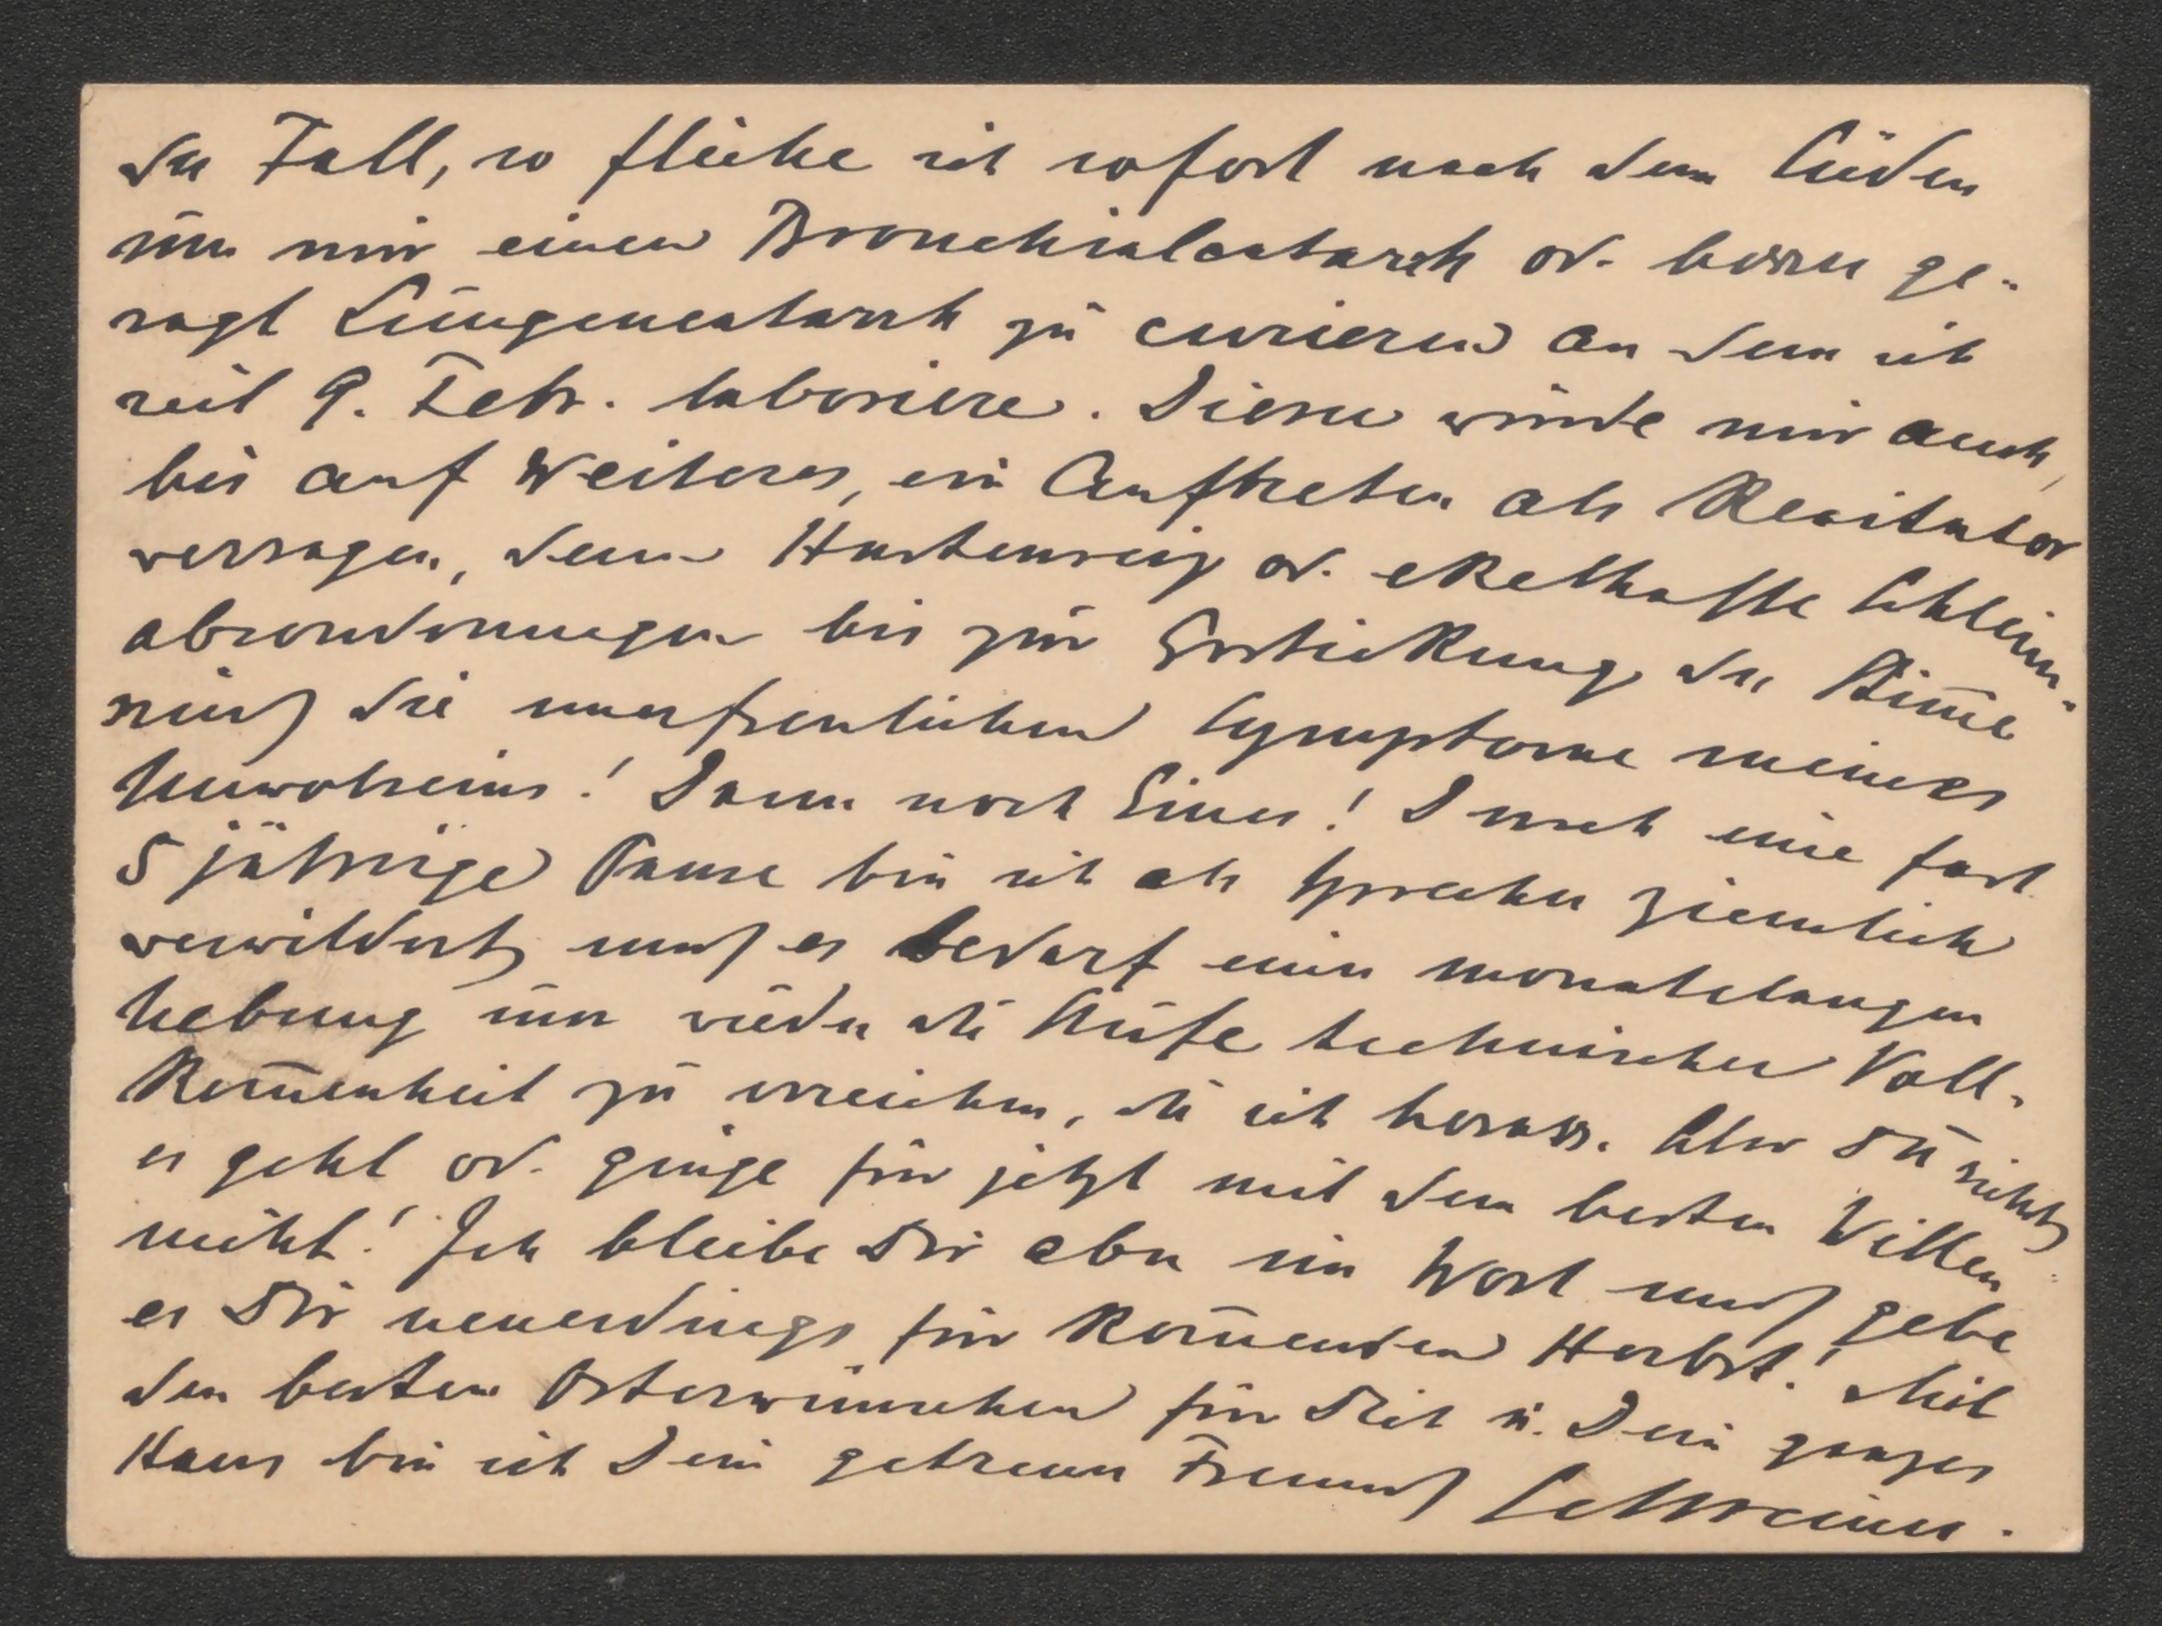 der Fall, so fliehe ich sofort nach dem Süden
um mir einen Bronchialcatarrh od. besser ge-
sagt Lungencatarrh zu curieren an dem ich
seit 9. Febr. laboriere. Dieser würde mir auch,
bis auf Weiteres, ein Auftreten als Recitator
versagen, denn Hustenreiz od. ekelhafte Schleim-
absonderungen bis zur Erstickung der Stim̅e
sind die unerfreulichen Symptome meines
Unwolseins! Dann noch Eines! Durch eine fast
5 jährige Pause bin ich als Sprecher ziemlich
verwildert und es bedarf einer monatelangen
Uebung um wieder die Stufe technischer Voll-
kom̅enheit zu erreichen, die ich besass. Aber Du siehst
es geht od. ginge für jetzt mit dem besten Willen
nicht! Ich bleibe Dir aber im Wort und gebe
es Dir neuerdings für kom̅enden Herbst! Mit
den besten Osterwünschen für Dich u. Dein ganzes
Haus bin ich Dein getreuer Freund Schreiner.